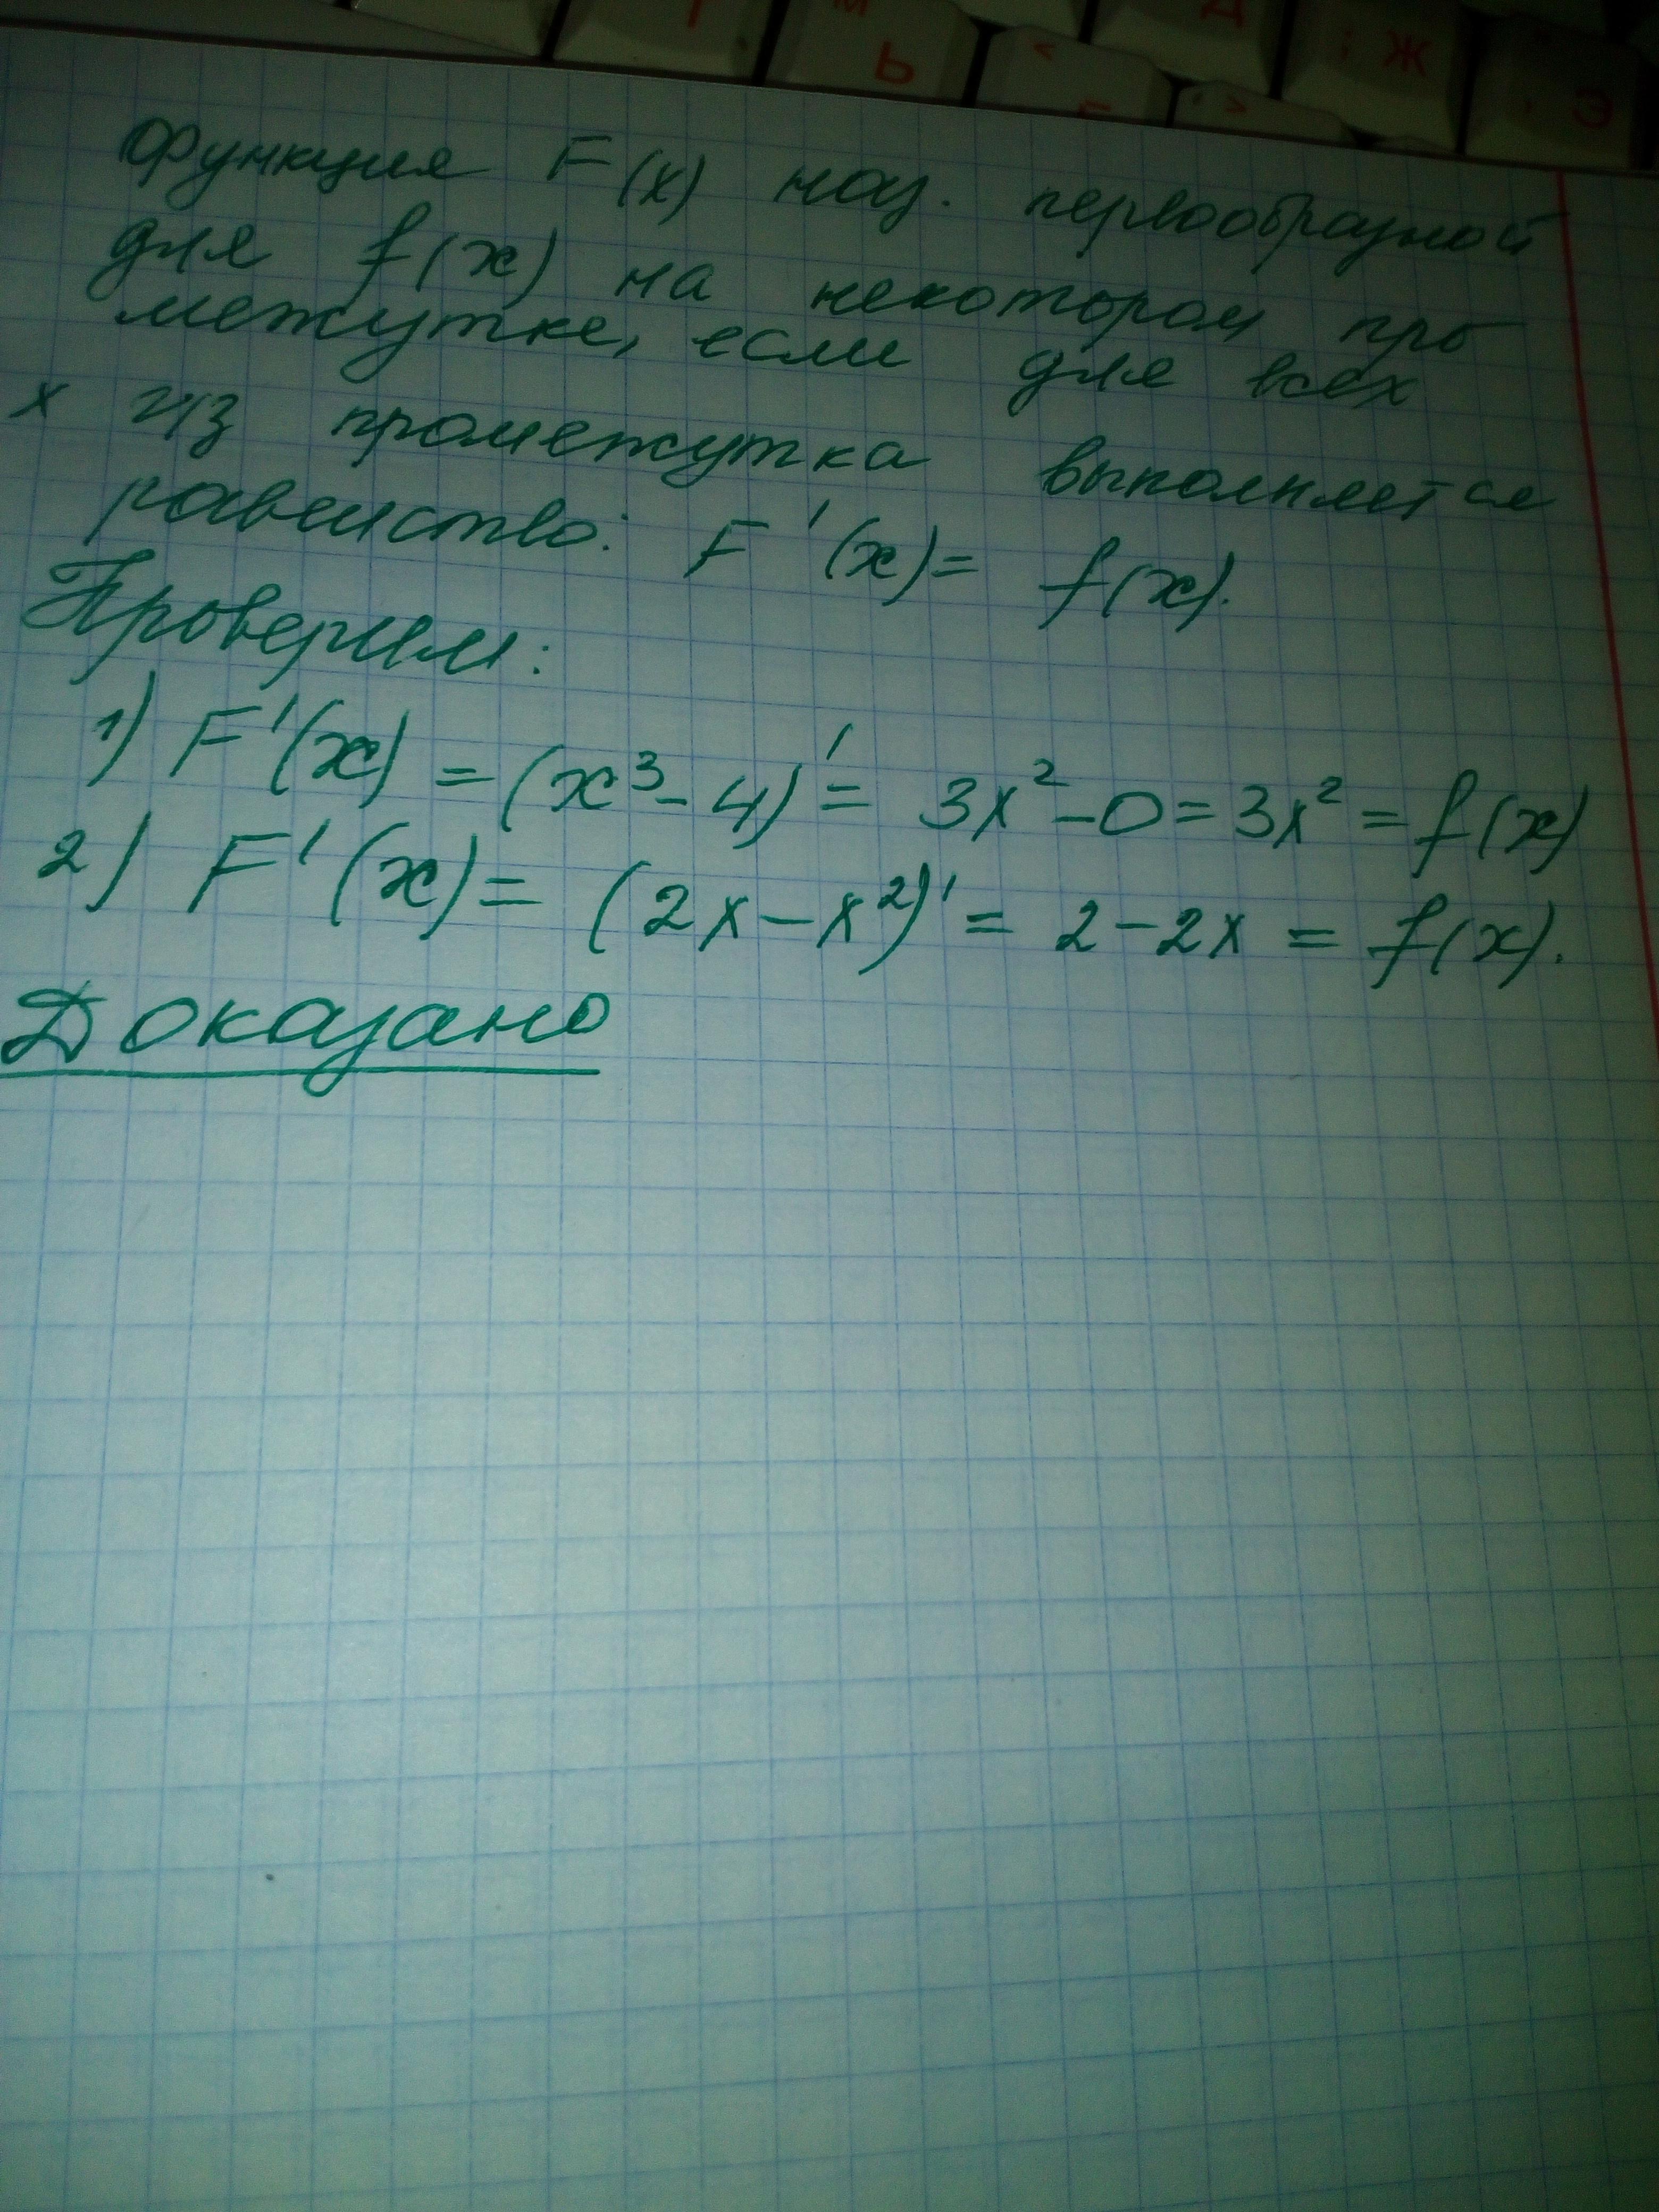 Функция F(x) наз. первообразной
для f(x) на некотором про
межутке, если для всех
x из промежутка выполняется
равенство: F'(x)= f(x).
Проверим:
1) F'(x) = (x³-4)' = 3x²-0=3x² = f(x)
2) F'(x)= (2x-x²)' = 2-2x = f(x).
Доказано